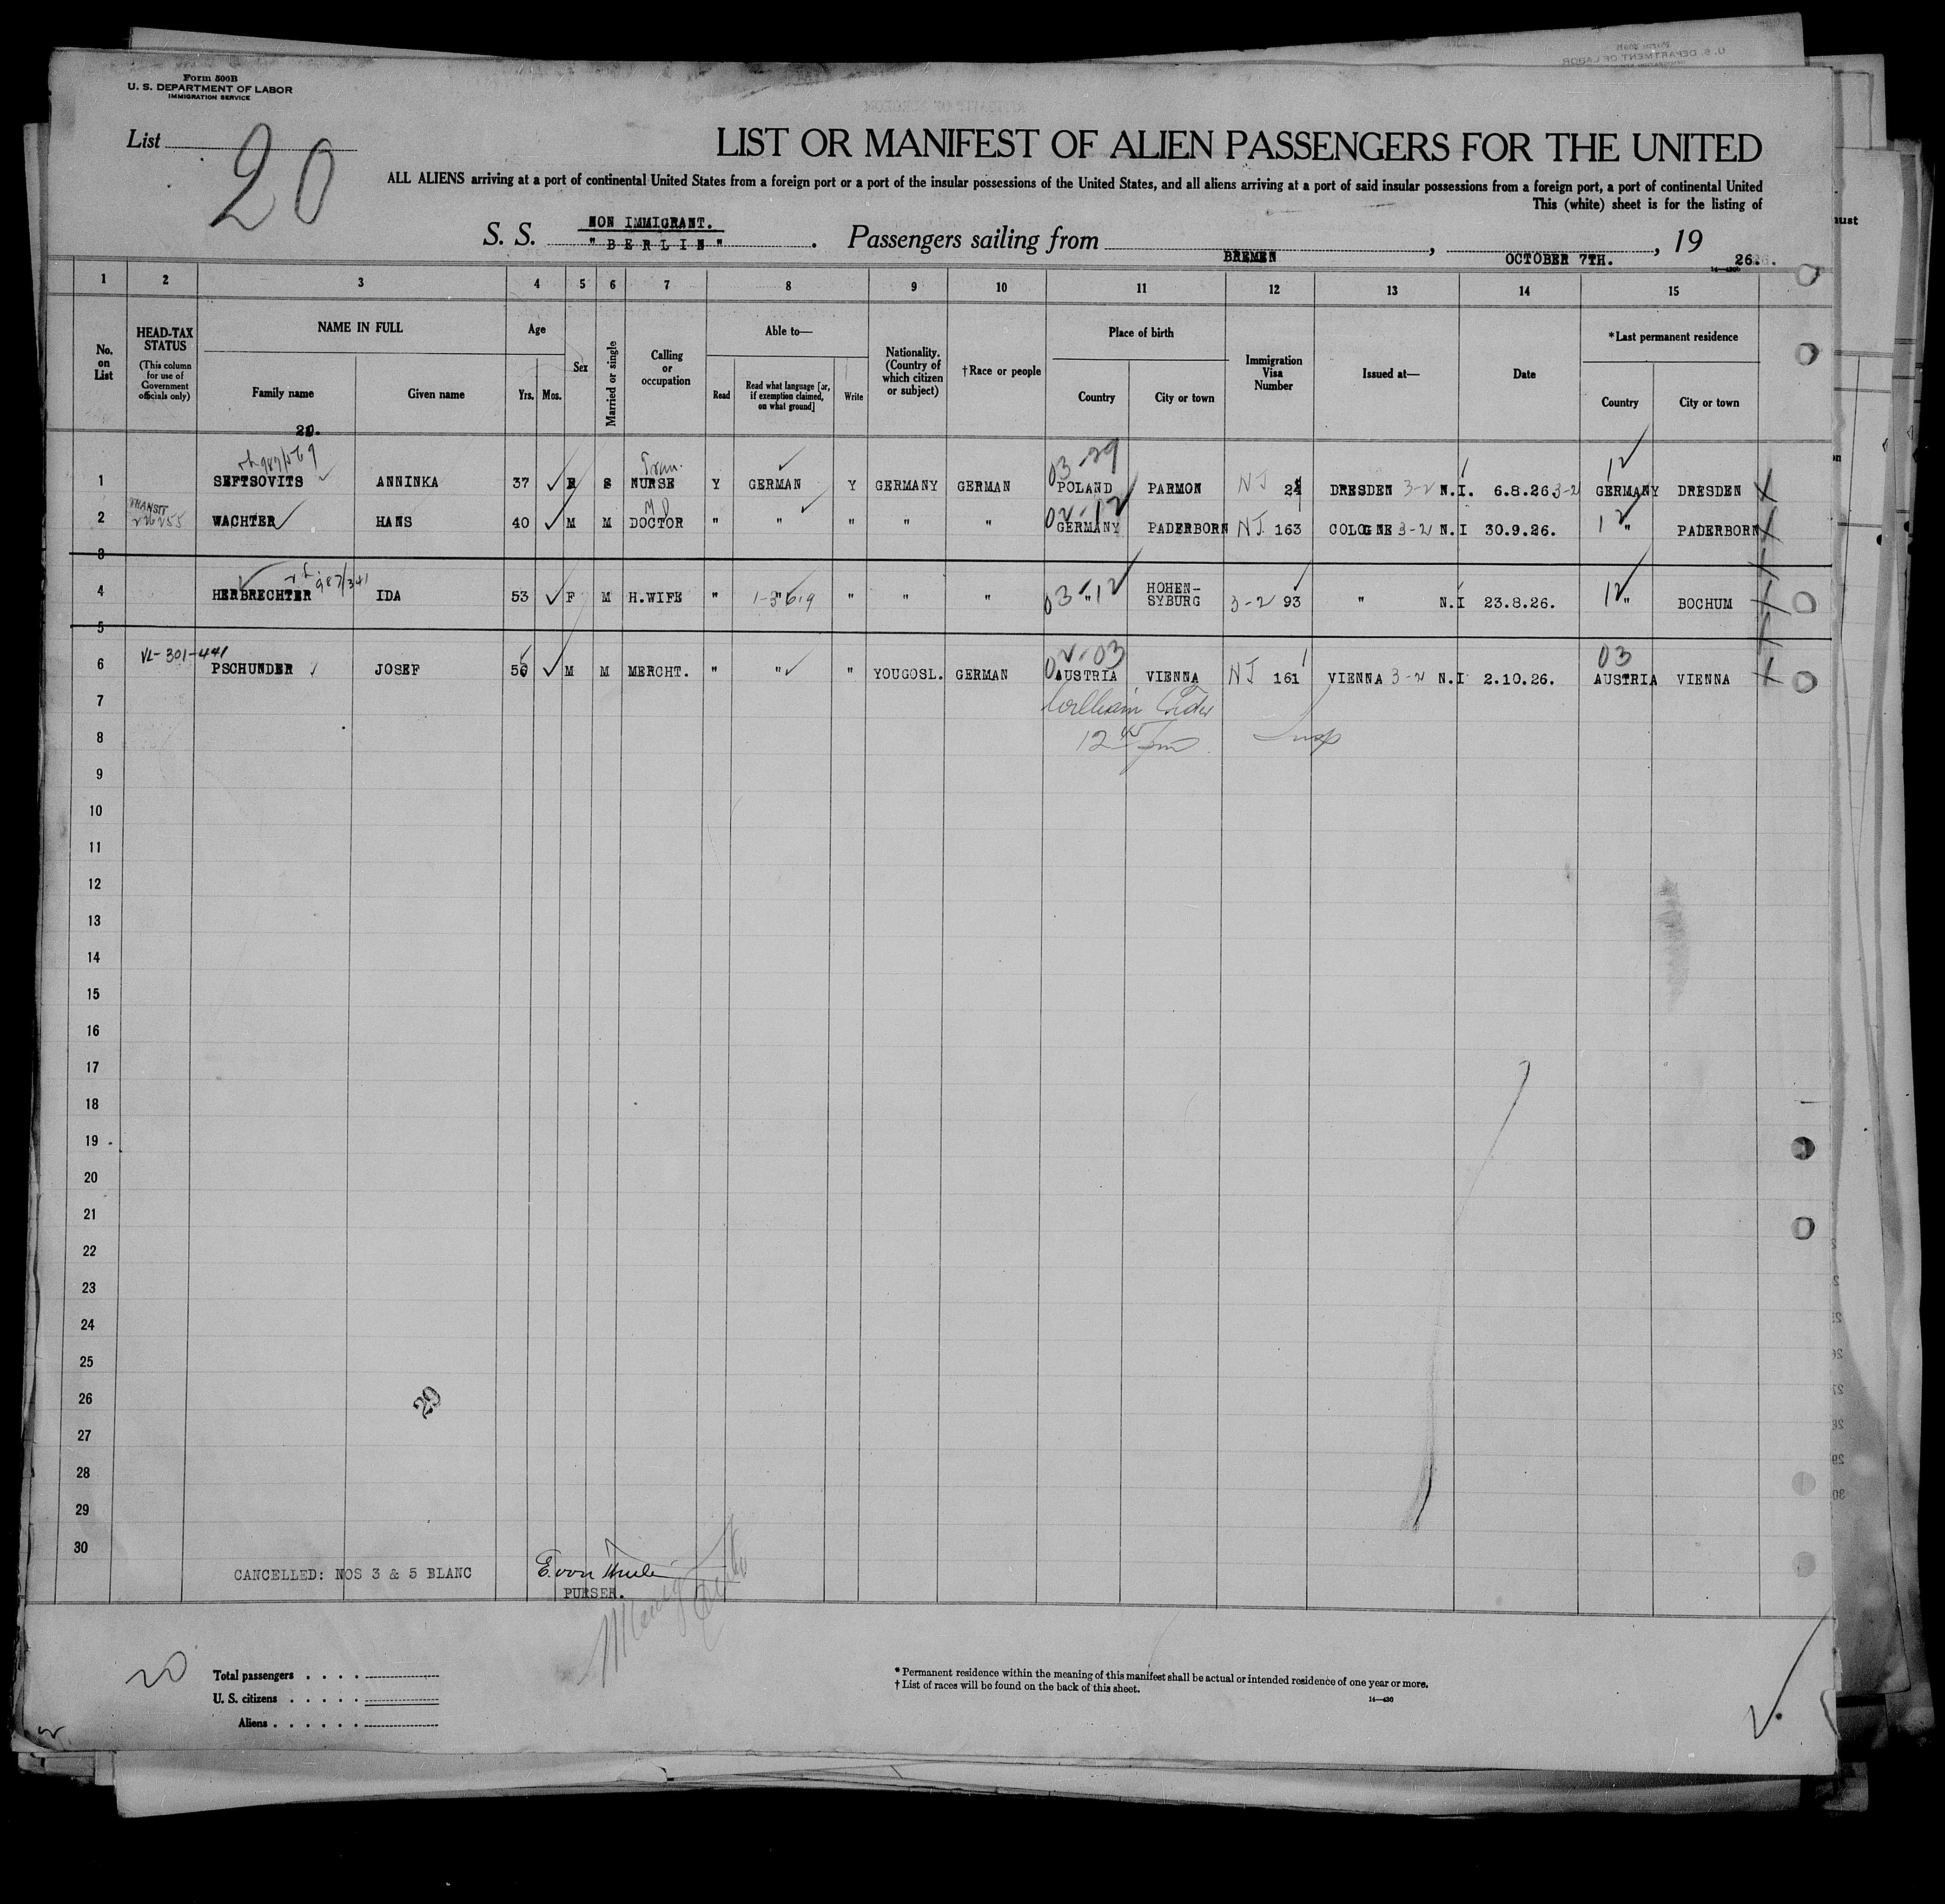 Form 500B
U. S. DEPARTMENT OF LABOR
IMMIGRATION SERVICE
List 20
LIST OR MANIFEST OF ALIEN PASSENGERS FOR THE UNITED
ALL ALIENS arriving at a port of continental United States from a foreign port or a port of the insular possessions of the United States, and all aliens arriving at a port of said insular possessions from a foreign port, a port of continental United
This (white) sheet is for the listing of
NON IMMIGRANT.
S. S. "BERLIN". Passengers sailing from BREMEN, OCTOBER 7TH., 19 26.
1 2 3 4 5 6 7 8 9 10 11 12 13 14 15
No. on List
HEAD-TAX STATUS
(This column for use of Government officials only)
NAME IN FULL
Family name
Given name
Age
Yrs. Mos.
Sex
Married or single
Calling or occupation
Able to—
Read
Read what language [or, if exemption claimed, on what ground]
Write
Nationality. (Country of which citizen or subject)
†Race or people
Place of birth
Country
City or town
Immigration Visa Number
Issued at—
Date
*Last permanent residence
Country
City or town
987/569
03-29 12
1 SEFTSOVITS ANNINKA 37 S NURSE Y GERMAN Y GERMANY GERMAN POLAND PARMON NJ DRESDEN 3-2 N.I. 6.8.26 3-2 GERMANY DRESDEN X
TRANSIT
MD
02-12 12
2 WACHTER HANS 40 M M DOCTOR " " " " " GERMANY PADERBORN NJ 163 COLOGNE 3-2 N.I 30.9.26. " PADERBORN X
3
987/341
4 HERBRECHTER IDA 53 F M H.WIFE " " " " " 03-12 " HOHEN-SYBURG 3-2 93 " N.I 23.8.26. 12 " BOCHUM
5
VL-301-441
02-03 03
6 PSCHUNDER JOSEF 56 M M MERCHT. " " " YOUGOSL. GERMAN AUSTRIA VIENNA NJ 161 VIENNA 3-2 N.I 2.10.26. AUSTRIA VIENNA X
7 William
8 12 45 pm Insp
9
10
11
12
13
14
15
16
17
18
19
20
21
22
23
24
25
26
20
27
28
29
30
CANCELLED: NOS 3 & 5 BLANC
E. von
PURSER.
20
Total passengers
U. S. citizens
Aliens
* Permanent residence within the meaning of this manifest shall be actual or intended residence of one year or more.
† List of races will be found on the back of this sheet.
14—430